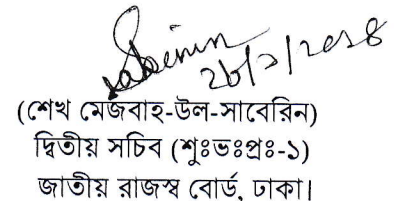 Saberin
(শেখ মেজবাহ-উল-সাবেরিন)
দ্বিতীয় সচিব (শুঃভঃপ্রঃ-১)
জাতীয় রাজস্ব বোর্ড, ঢাকা।